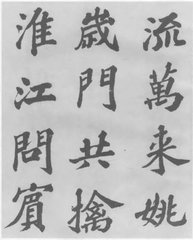 流萬来姚
歲門共擒
淮江問賓